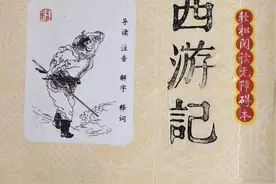 西游記
轻松阅读无障碍本
导读 注音 解字 释词